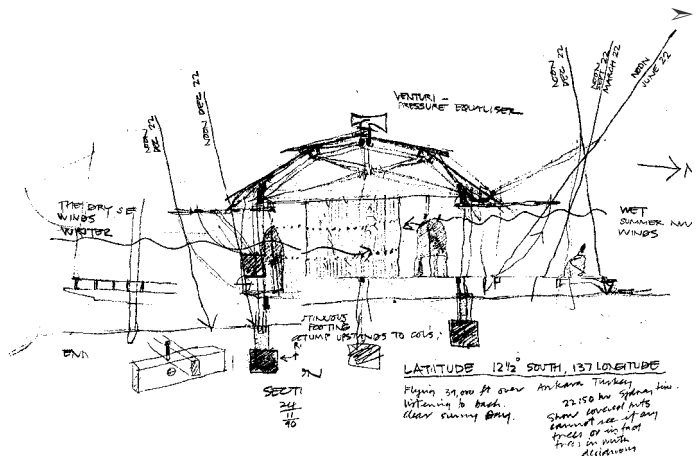 NOON
DEC 22
NOON DEC 22
VENTURI –
PRESSURE EQUALISER
NOON
DEC 22
NOON
SEPT 22
MARCH 22
NOON
JUNE 22
N
THE DRY SE
WINDS
WINTER
WET
SUMMER NW
WINDS
TINUOUS
FOOTING
STUMP UPSTANDS TO COL'S,
SECTI
24
11
90
LATITUDE 12½° SOUTH, 137 LONGITUDE
Flying 39,000 ft over Ankara Turkey
listening to bach.
clear sunny day.
22.50 hr Sydney time.
Snow covered mts
cannot see if any
trees or in fact
trees in
deciduous